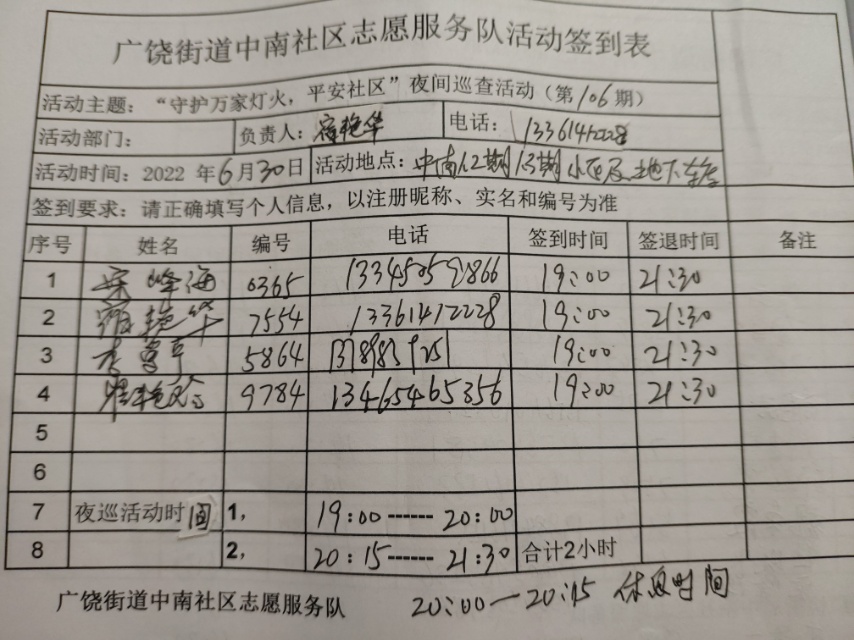 广饶街道中南社区志愿服务队活动签到表
活动主题：“守护万家灯火，平安社区”夜间巡查活动（第106期）
活动部门： 负责人：宿艳华 电话：13361412228
活动时间：2022 年6月30日 活动地点：中南 期 期小区及地下车库
签到要求：请正确填写个人信息，以注册昵称、实名和编号为准
序号 姓名 编号 电话 签到时间 签退时间 备注
1 海 0365 19:00 21:30
2 宿艳华 7554 13361412228 19:00 21:30
3 李 5864 19:00 21:30
4 9784 13465465356 19:00 21:30
5
6
7 夜巡活动时间 1, 19:00------20:00
8 2, 20:15------21:30 合计2小时
广饶街道中南社区志愿服务队 20:00—20:15 休息时间